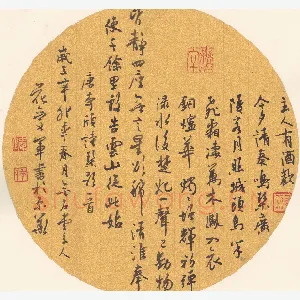 主人有酒歡
今夕請奏鳴琴廣
陵客月照城頭烏半
飛霜淒萬木風入衣
銅爐華燭燭增輝初彈
淥水後楚妃一聲已動物
皆靜四座無言星欲稀清淮奉
使千餘里敢告雲山從此始
唐李頎詩琴歌一首
歲在辛卯年春月主人
軍書於京華